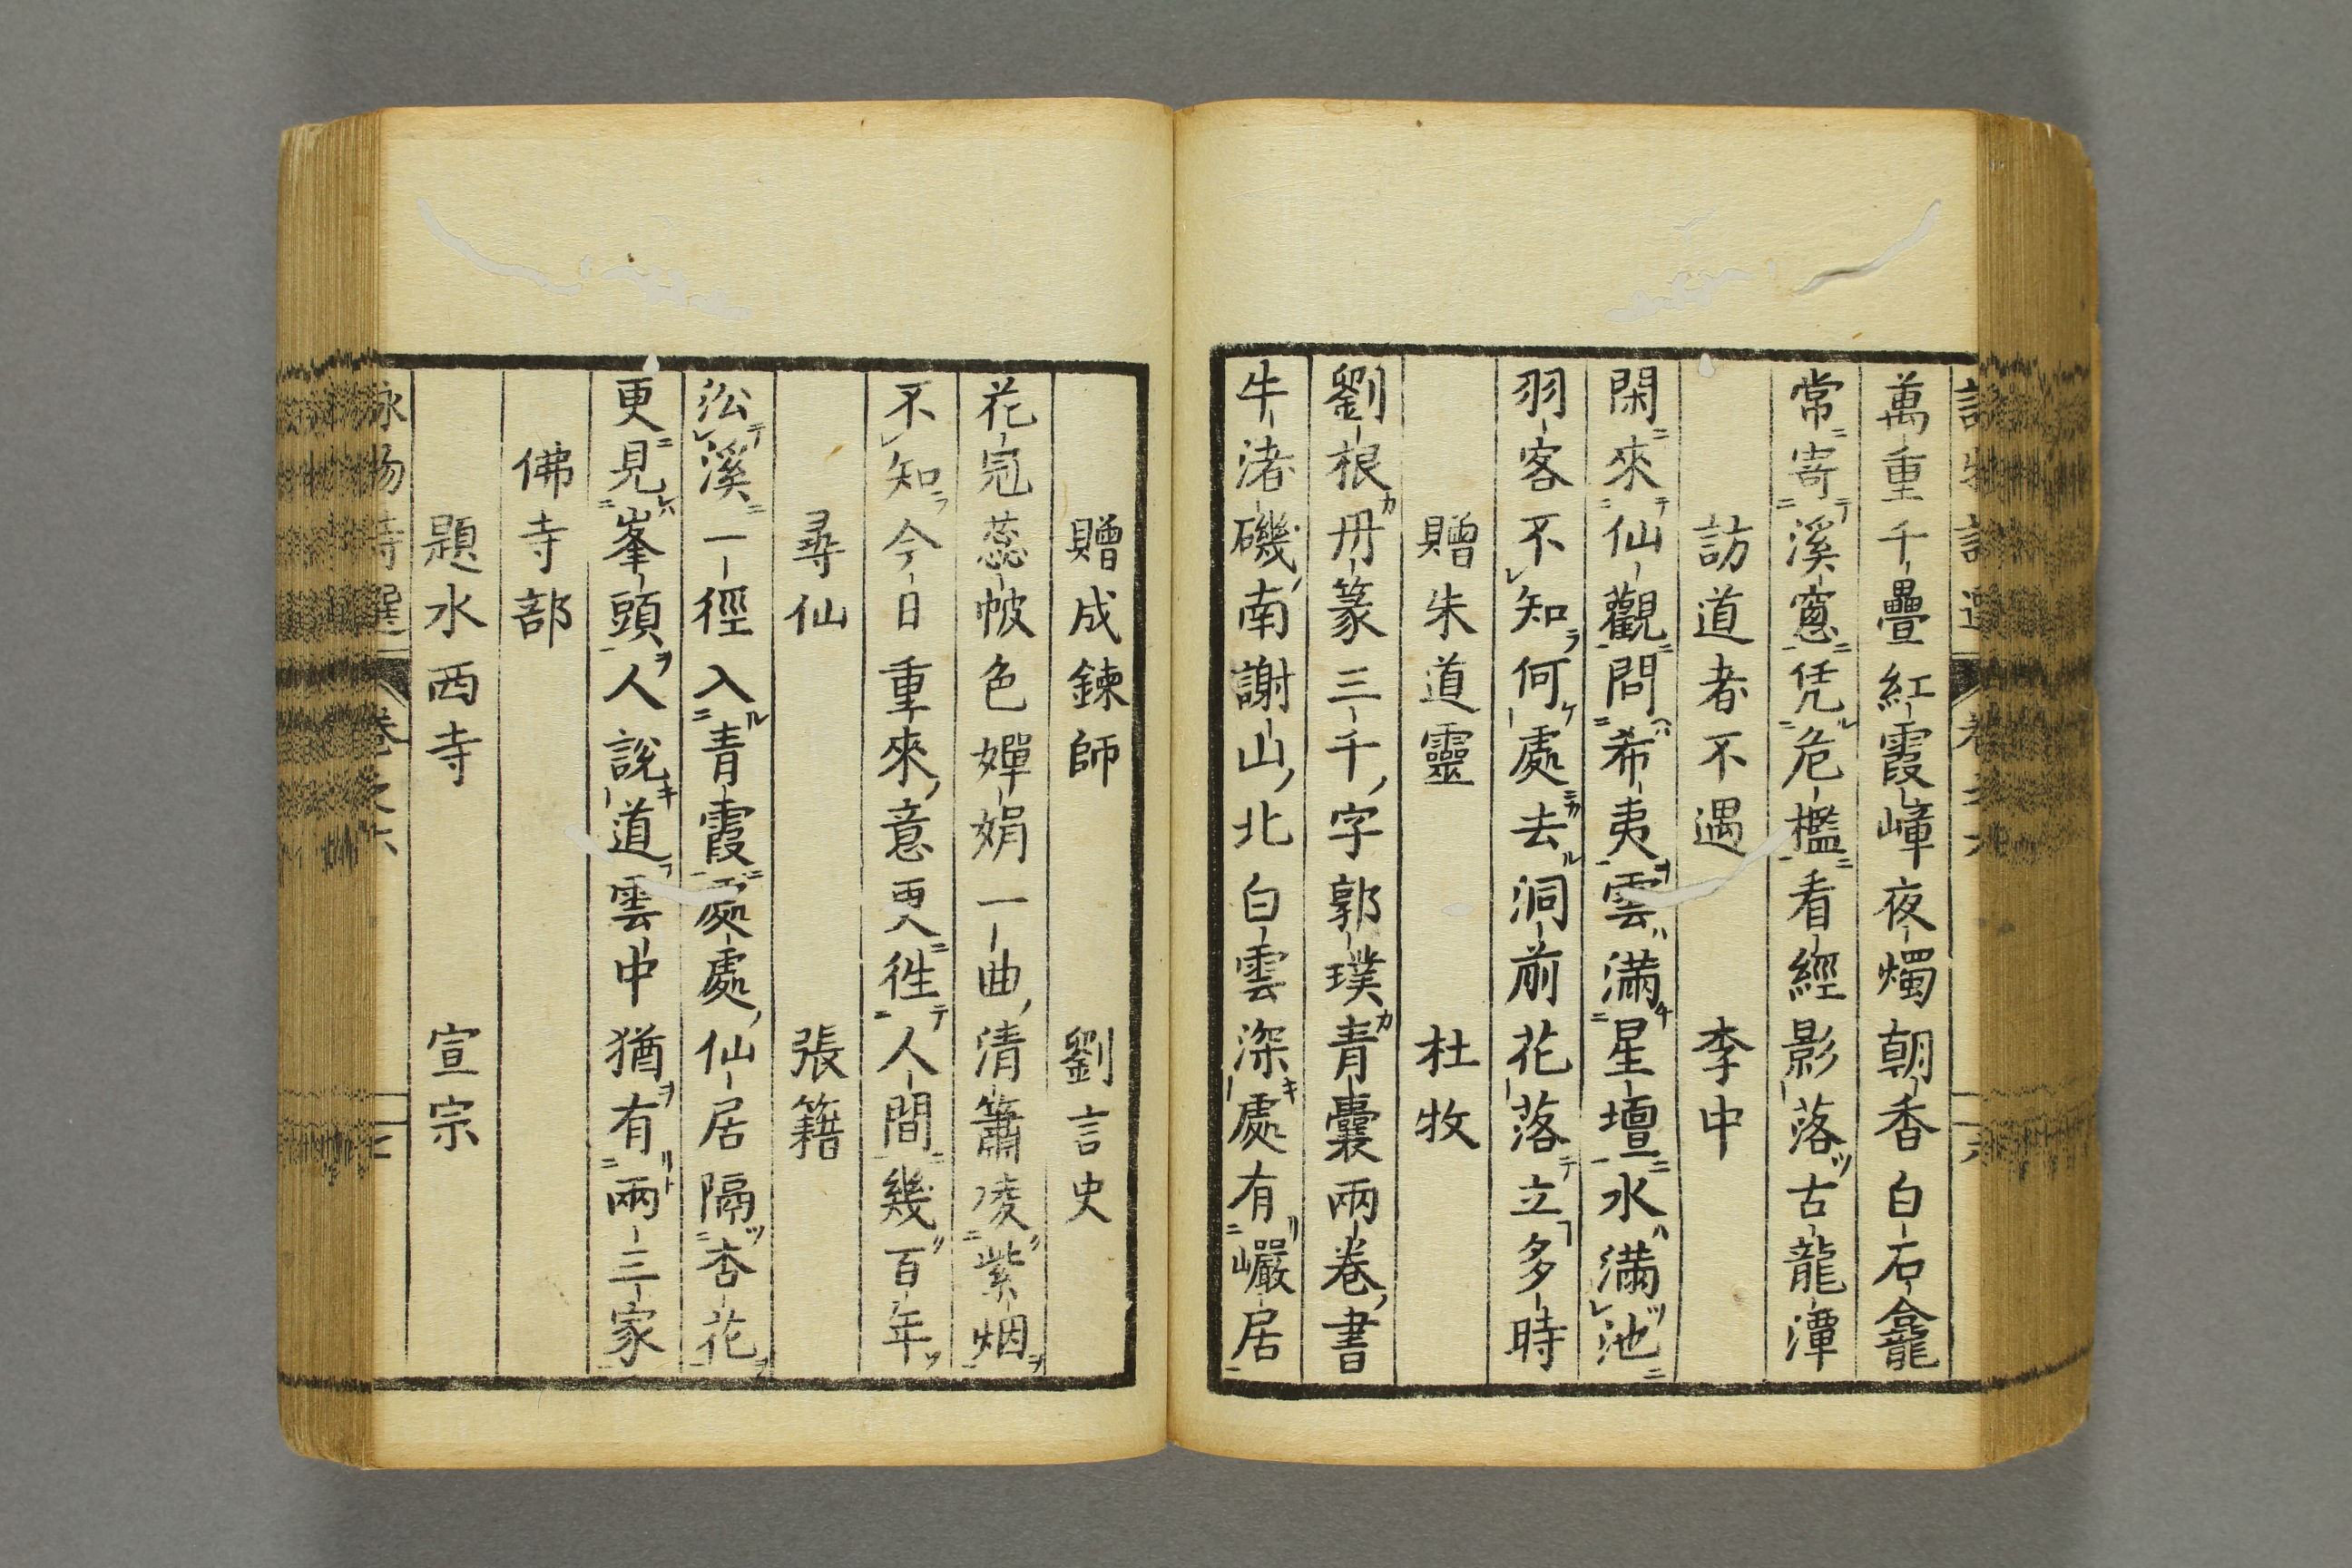 萬重千疊紅霞嶂夜燭朝香白石龕
常寄溪窻凭危檻看經影落古龍潭
訪道者不遇 李中
閑來仙觀問希夷雲滿星壇水滿池
羽客不知何處去洞前花落立多時
贈朱道靈 杜牧
劉根丹篆三千字郭璞青囊兩卷書
牛渚磯南謝山北白雲深處有巖居
贈成鍊師 劉言史
花冠蕊帔色嬋娟一曲清簫凌紫烟
不知今日重來意更往人間幾百年
尋仙 張籍
㳂溪一徑入青霞處處仙居隔杏花
更見峯頭人說道雲中猶有兩三家
佛寺部
題水西寺 宣宗
詠物詩選 卷之六